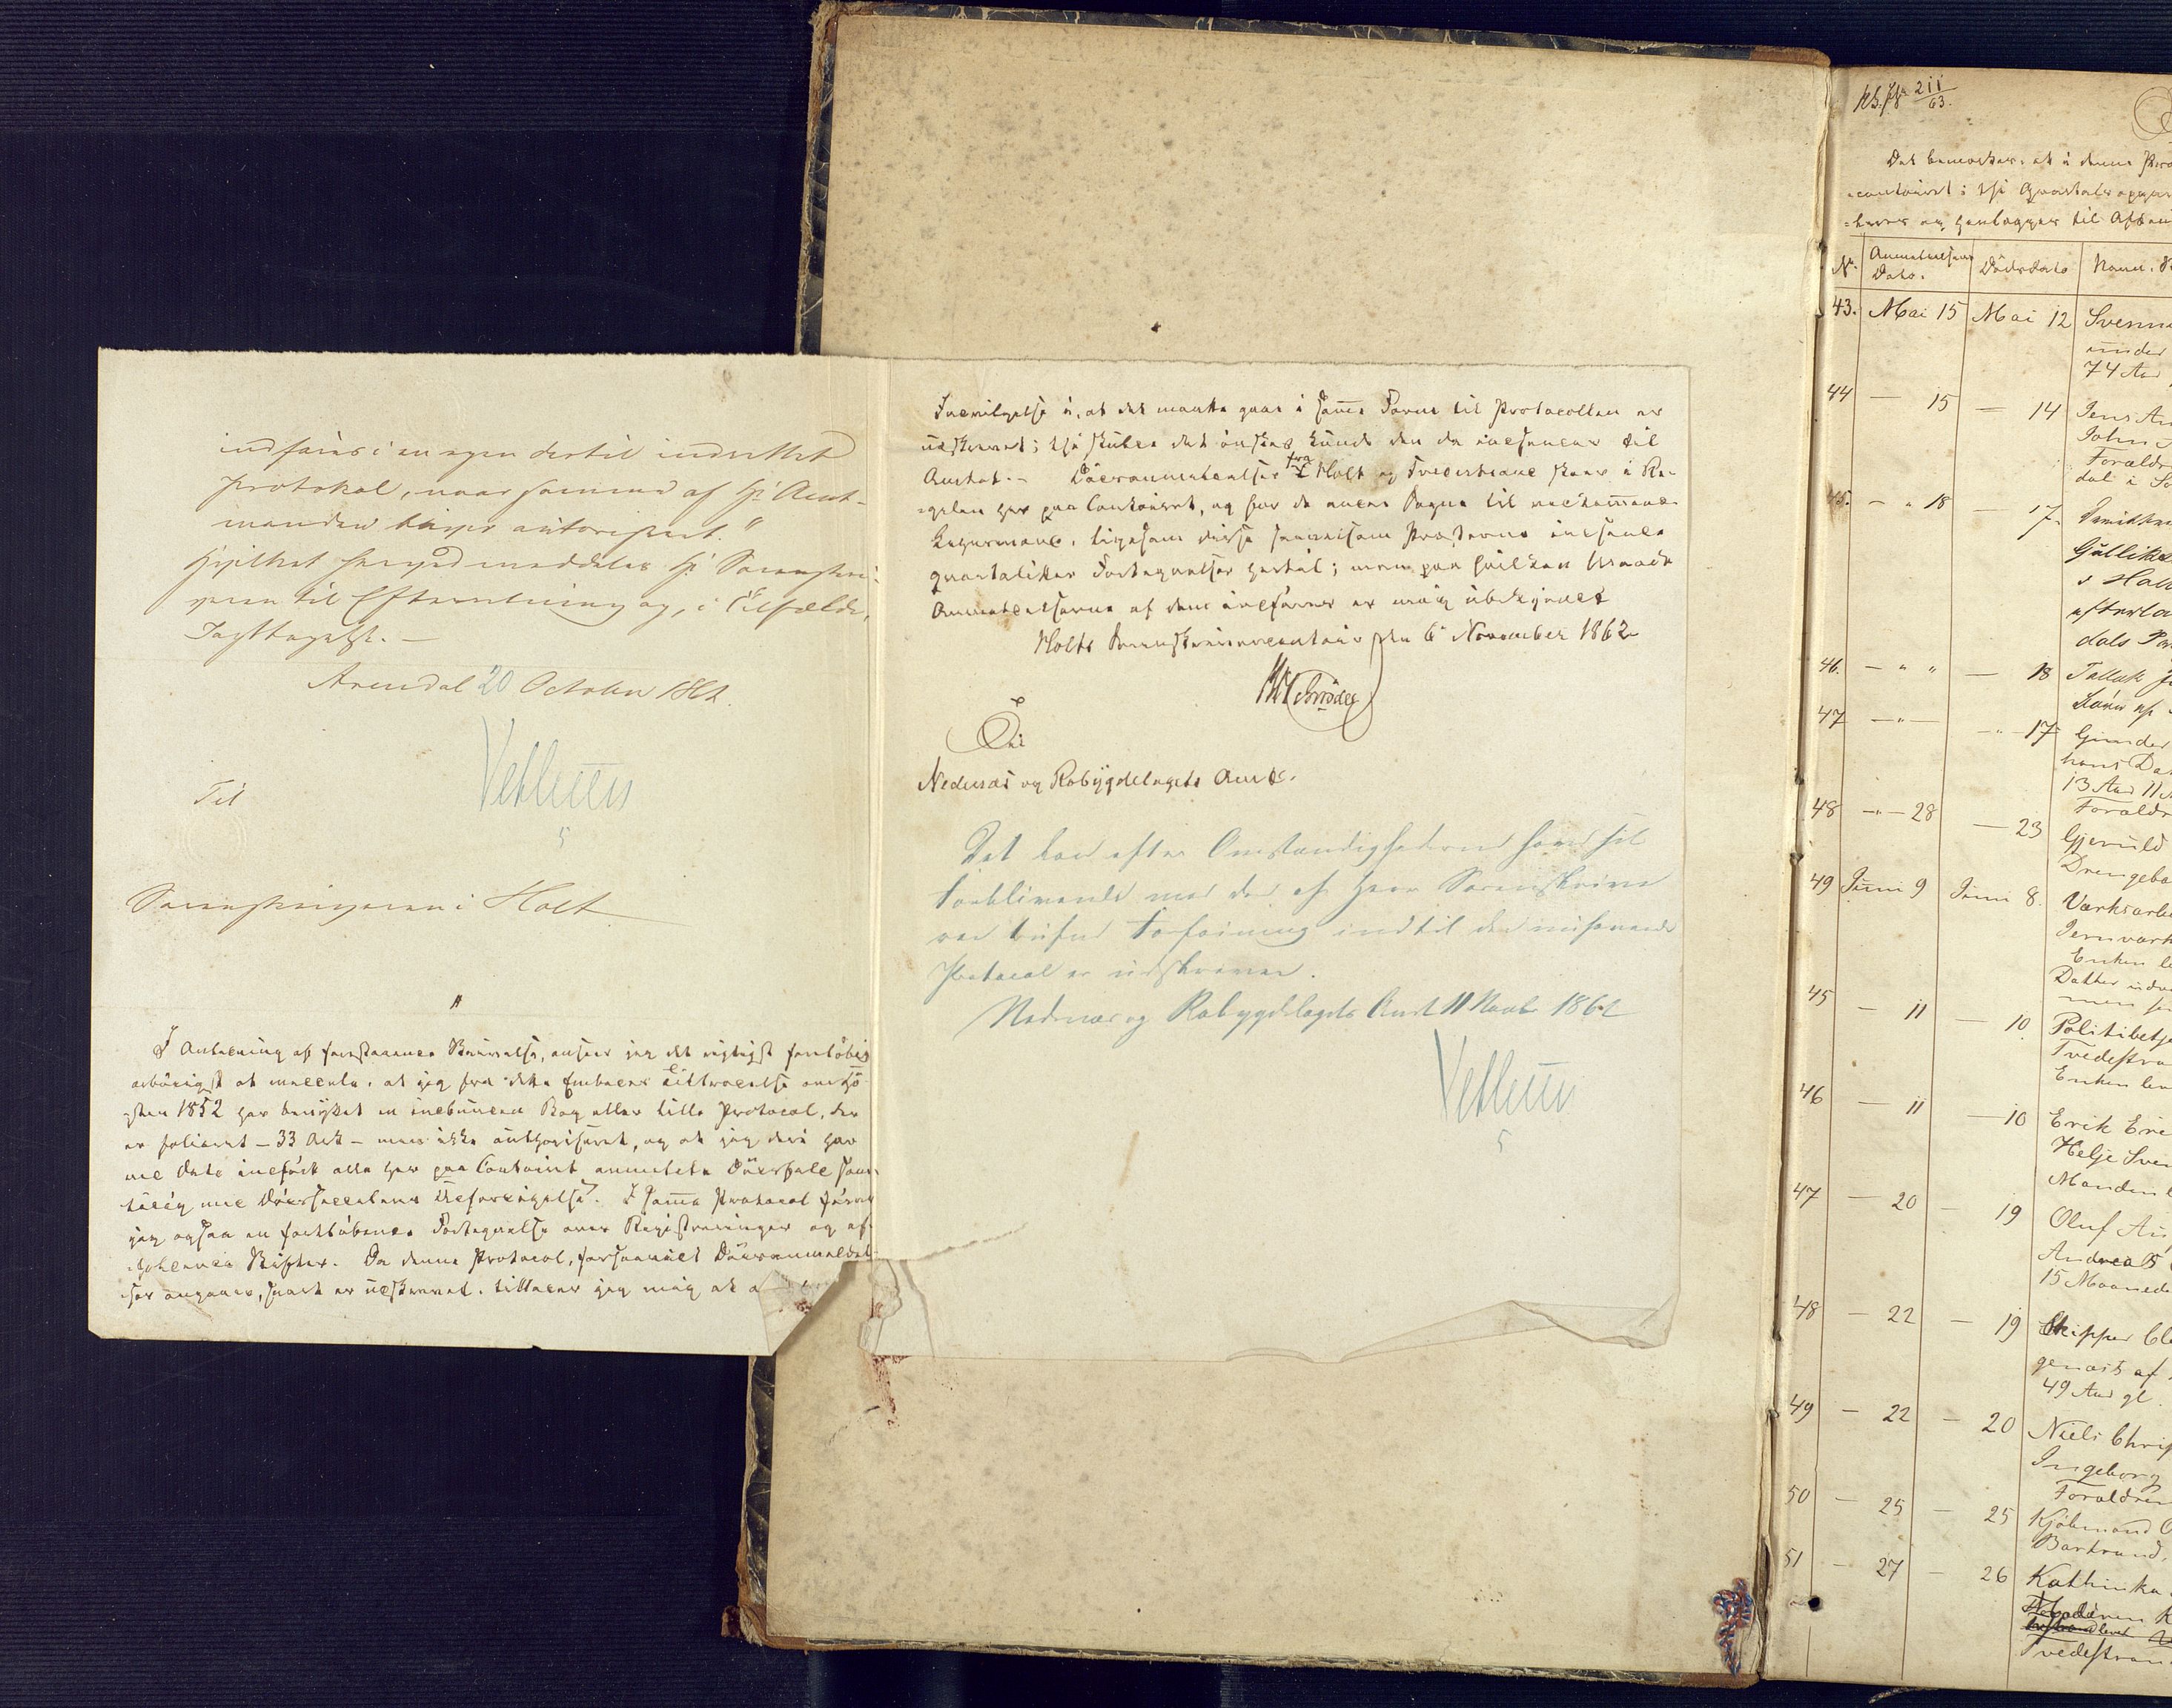 indføres i en egen dertil indrettet
Protokol, naar saamed af Hr Amt-
manden bliver autoriseret."
Hvilket herved meddeles Hr Sorenskri-
veren til Efterretning og, i Tilfælde,
Iagttagelse. —
Arendal 20 October 1862.
Vetlesen
Til
Sorenskriveren i Holt
I Anledning af foranstaaende Skrivelse, anseer jeg det rigtigst foreløbig
ærbødigst at melde, at jeg fra dette Embedes Tiltrædelse om Hø-
sten 1852 har benyttet en indbunden Bog eller lille Protocol, der
er folieret – 33 Ark – men ikke authoriseret, og at jeg deri har
med Dato indført alle her paa Contoiret anmeldte Dödsfald sam-
tidig med Dödsseddelens Udfærdigelse. I samme Protocol fører
jeg ogsaa en fortløbende Fortegnelse over Registreringer og af-
sholdte Skifter. Da denne Protocol, forsaavidt Dödsanmeldel-
ser angaaer, snart er udskrevet, tillader jeg mig at
Indvilgelse i, at det maatte gaae i samme Form til Protocollen er
udskrevet; thi skulde det ønskes kunde den da indsendes til
Amtet. – Dödsanmeldelser fra Holt og Tvedestrand skeer i Re-
gelen her paa Contoiret, og for de andre Sogne til vedkommende
Lehnsmænd, ligesom disse saavelsom Præsterne indsende
quartaliter Fortegnelser hertil; men paa hvilken Maade
Anmeldelserne af dem indføres er mig ubekjendt
Holts Sorenskrivercontoir den 6 November 1862
Til
Nedenæs og Robygdelagets Amt.
Det kan efter Omstændighederne have sit
Forblivende med den af Herr Sorenskriver
Forføining indtil den nuhavende
Protocol er udskreven.
Nedenæs og Robygdelagets Amt 11 Novbr 1862
Vetlesen
211
63.
Det bemærkes, at i denne Pro
contoiret; thi Qvartalsopgav
og henlægges til
No. Anmeldelsens Dato. Dödsdato Navn,
43. Mai 15 Mai 12
74 Aar
44 — 15 — 14 Jens
John
Forældr
45. — " 18 — 17.
Gullik
efterla
dals
46. — " " — 18 Tallak
47 — " — — " 17 Gunder
hans Dat
13 Aar 11
Forældr
48 — " — 28 — 23 Gjeruld
Drengeba
49 Juni 9 Juni 8. Værksarbe
Jernværk
Enken le
Datter
45 — 11 — 10. Politibetje
Tvedestra
Enken lev
46 — 11 — 10 Erik Eri
Helje Sve
Manden l
47 — 20 — 19 Oluf
Andreas
15 Maaned
48 — 22 — 19 Skipper
49 Aar gl.
49 — 22 — 20 Niels Chris
Ingeborg
Forældren
50 — 25 — 25 Kjöbmand
51 — 27 — 26 Kathinka
Tvedestran